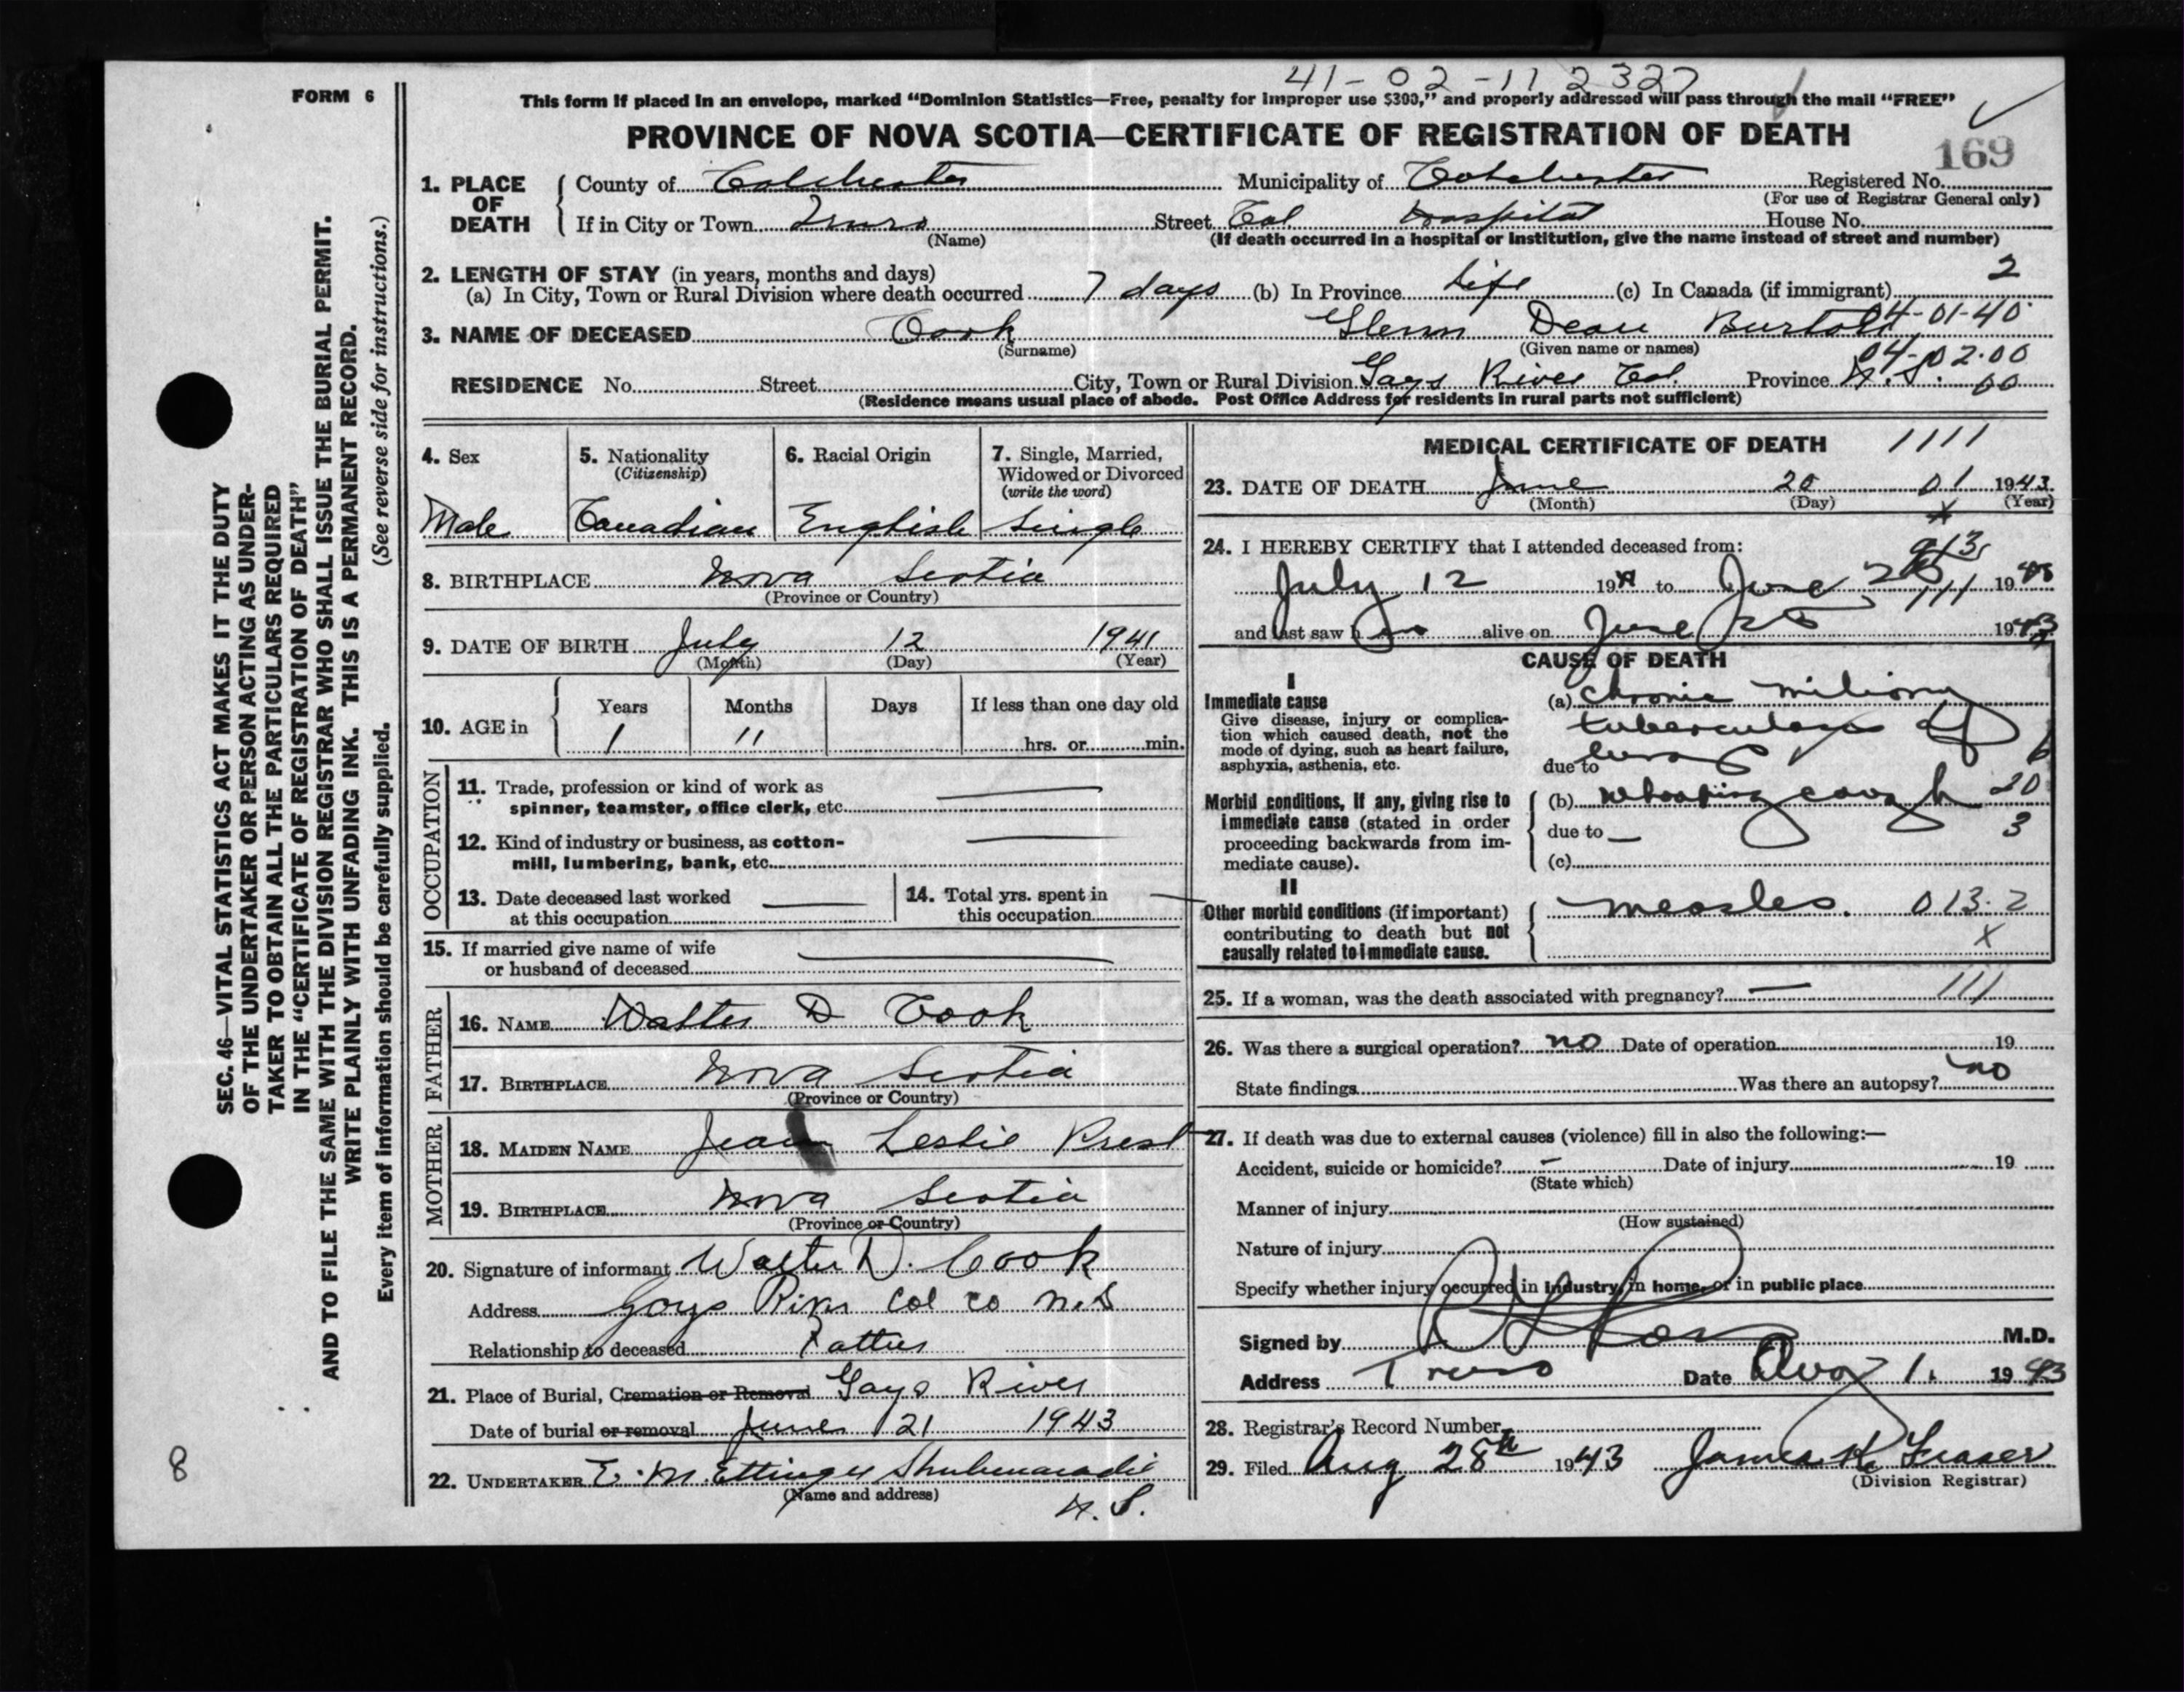 41-02-11 2327
FORM 6
This form if placed in an envelope, marked "Dominion Statistics—Free, penalty for improper use $300," and properly addressed will pass through the mail "FREE"
PROVINCE OF NOVA SCOTIA—CERTIFICATE OF REGISTRATION OF DEATH
169
1. PLACE OF DEATH County of Colchester Municipality of Colchester Registered No.
(For use of Registrar General only)
If in City or Town Truro Street Col. Hospital House No.
(Name) (If death occurred in a hospital or institution, give the name instead of street and number)
2. LENGTH OF STAY (in years, months and days) 2
(a) In City, Town or Rural Division where death occurred 7 days (b) In Province Life (c) In Canada (if immigrant)
3. NAME OF DECEASED Cook Glenn Dean 04-01-40
(Surname) (Given name or names) 04-02.00
RESIDENCE No. Street City, Town or Rural Division Gays River Col. Province N.S. 00
(Residence means usual place of abode. Post Office Address for residents in rural parts not sufficient)
4. Sex 5. Nationality 6. Racial Origin 7. Single, Married,
(Citizenship) Widowed or Divorced
(write the word)
Male Canadian English Single
8. BIRTHPLACE Nova Scotia
(Province or Country)
9. DATE OF BIRTH July 12 1941
(Month) (Day) (Year)
10. AGE in Years Months Days If less than one day old
1 11 hrs. or min.
OCCUPATION
11. Trade, profession or kind of work as
spinner, teamster, office clerk, etc. —
12. Kind of industry or business, as cotton-
mill, lumbering, bank, etc. —
13. Date deceased last worked 14. Total yrs. spent in
at this occupation — this occupation —
15. If married give name of wife
or husband of deceased —
FATHER
16. NAME Walter D Cook
17. BIRTHPLACE Nova Scotia
(Province or Country)
MOTHER
18. MAIDEN NAME Jean Leslie Prest
19. BIRTHPLACE Nova Scotia
(Province or Country)
20. Signature of informant Walter D. Cook
Address Gays River Col Co N.S
Relationship to deceased Father
21. Place of Burial, Cremation or Removal Gays River
Date of burial or removal June 21 1943
22. UNDERTAKER E. M. Ettinger Shubenacadie
(Name and address) N.S.
MEDICAL CERTIFICATE OF DEATH 1111
23. DATE OF DEATH June 20 01 1943
(Month) (Day) (Year)
24. I HEREBY CERTIFY that I attended deceased from:
July 12 19 to June 20 111 1943
and last saw h alive on June 20 1943
CAUSE OF DEATH
I
Immediate cause (a) chronic miliary
Give disease, injury or complica- tuberculosis of
tion which caused death, not the lung
mode of dying, such as heart failure,
asphyxia, asthenia, etc. due to 6
Morbid conditions, if any, giving rise to (b) whooping cough 20
immediate cause (stated in order due to — 3
proceeding backwards from im-
mediate cause). (c)
II
Other morbid conditions (if important) measles. 013.2
contributing to death but not X
causally related to immediate cause.
25. If a woman, was the death associated with pregnancy? — 111
26. Was there a surgical operation? no Date of operation 19
State findings Was there an autopsy? no
27. If death was due to external causes (violence) fill in also the following:—
Accident, suicide or homicide? - Date of injury 19
(State which)
Manner of injury
(How sustained)
Nature of injury
Specify whether injury occurred in industry, in home, or in public place
Signed by M.D.
Address Truro Date Aug 1. 1943
28. Registrar's Record Number
29. Filed Aug 28th 1943 James K. Fraser
(Division Registrar)
SEC. 46—VITAL STATISTICS ACT MAKES IT THE DUTY
OF THE UNDERTAKER OR PERSON ACTING AS UNDER-
TAKER TO OBTAIN ALL THE PARTICULARS REQUIRED
IN THE "CERTIFICATE OF REGISTRATION OF DEATH"
AND TO FILE THE SAME WITH THE DIVISION REGISTRAR WHO SHALL ISSUE THE BURIAL PERMIT.
WRITE PLAINLY WITH UNFADING INK. THIS IS A PERMANENT RECORD.
(See reverse side for instructions.)
Every item of information should be carefully supplied.
8